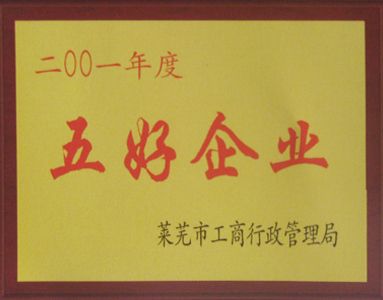 二〇〇一年度
五好企业
莱芜市工商行政管理局